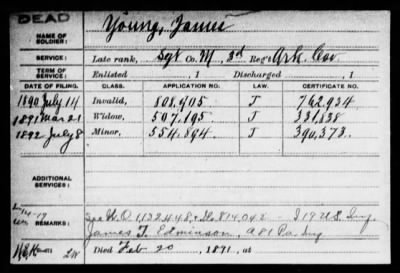 DEAD
NAME OF SOLDIER: Young, James
SERVICE: Late rank, Sgt Co. M, 3d Reg't Ark. Cav.
TERM OF SERVICE: Enlisted , 1 Discharged , 1
DATE OF FILING. CLASS. APPLICATION NO. LAW. CERTIFICATE NO.
1890 July 14 Invalid, 808,905 J 762,934
1891 Mar 21 Widow, 507,195 J 331,838
1892 July 8 Minor, 554,894 J 390,373
ADDITIONAL SERVICES:
REMARKS: See W.O. 1,132,448 814,042 - I 19 U.S. Inf.
James T. Edminson, A 81 Pa. Inf
Died Feb 20 , 1891, at